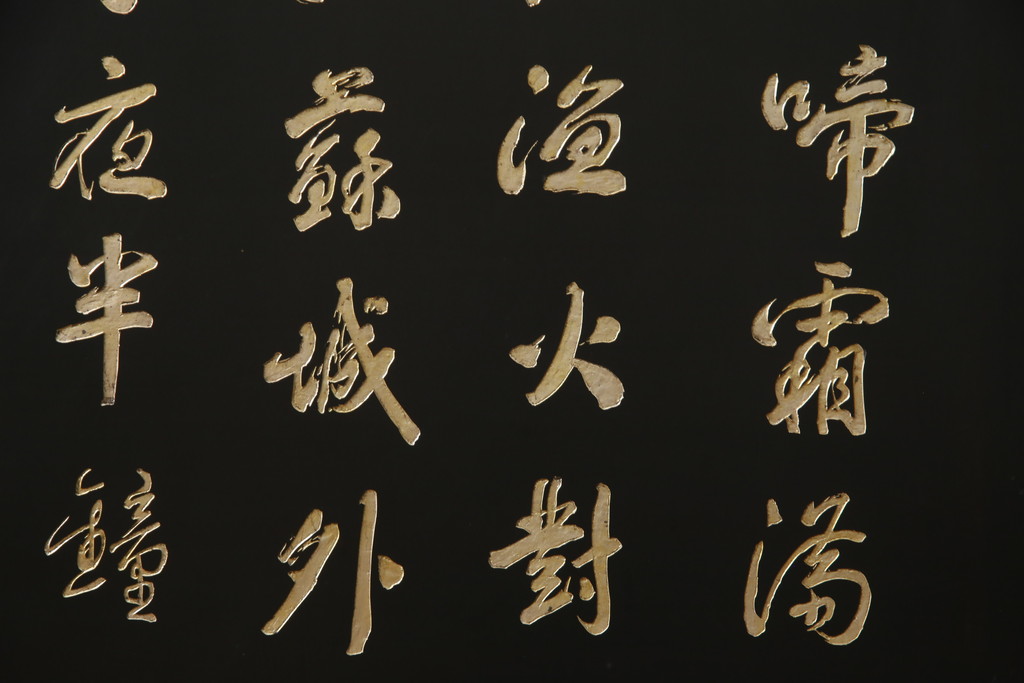 啼霜滿
漁火對
蘇城外
夜半鐘